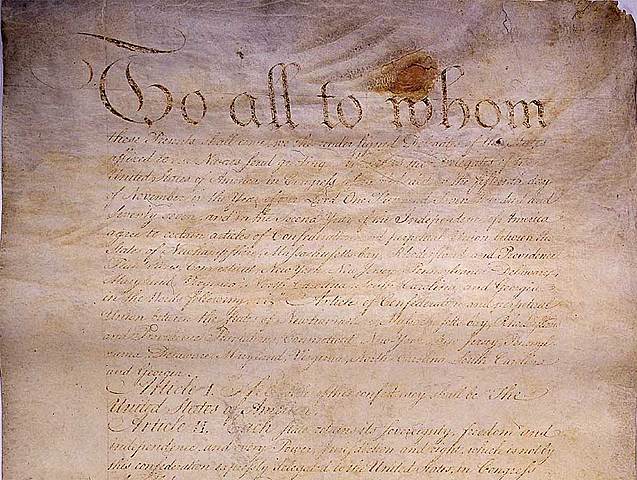 To all to whom
these Presents shall come, we the under signed Delegates of the States
affixed to our Names send greeting. Whereas the Delegates of the
United States of America in Congress assembled did on the fifteenth day
of November in the Year of our Lord One Thousand Seven Hundred and
Seventy seven, and in the Second Year of the Independence of America
agree to certain articles of Confederation and perpetual Union between the
States of Newhampshire, Massachusetts-bay, Rhodeisland and Providence
Plantations, Connecticut, New York, New Jersey, Pennsylvania, Delaware,
Maryland, Virginia, North Carolina, South Carolina, and Georgia
in the Words following, viz. Articles of Confederation and perpetual
Union between the States of Newhampshire, Massachusetts-bay, Rhodeisland
and Providence Plantations, Connecticut, New York, New Jersey, Pennsyl-
vania, Delaware, Maryland, Virginia, North Carolina, South Carolina
and Georgia.
Article I. The Stile of this confederacy shall be "The
United States of America."
Article II. Each state retains its sovereignty, freedom and
independence, and every Power, Jurisdiction and right, which is not by
this confederation expressly delegated to the United States, in Congress